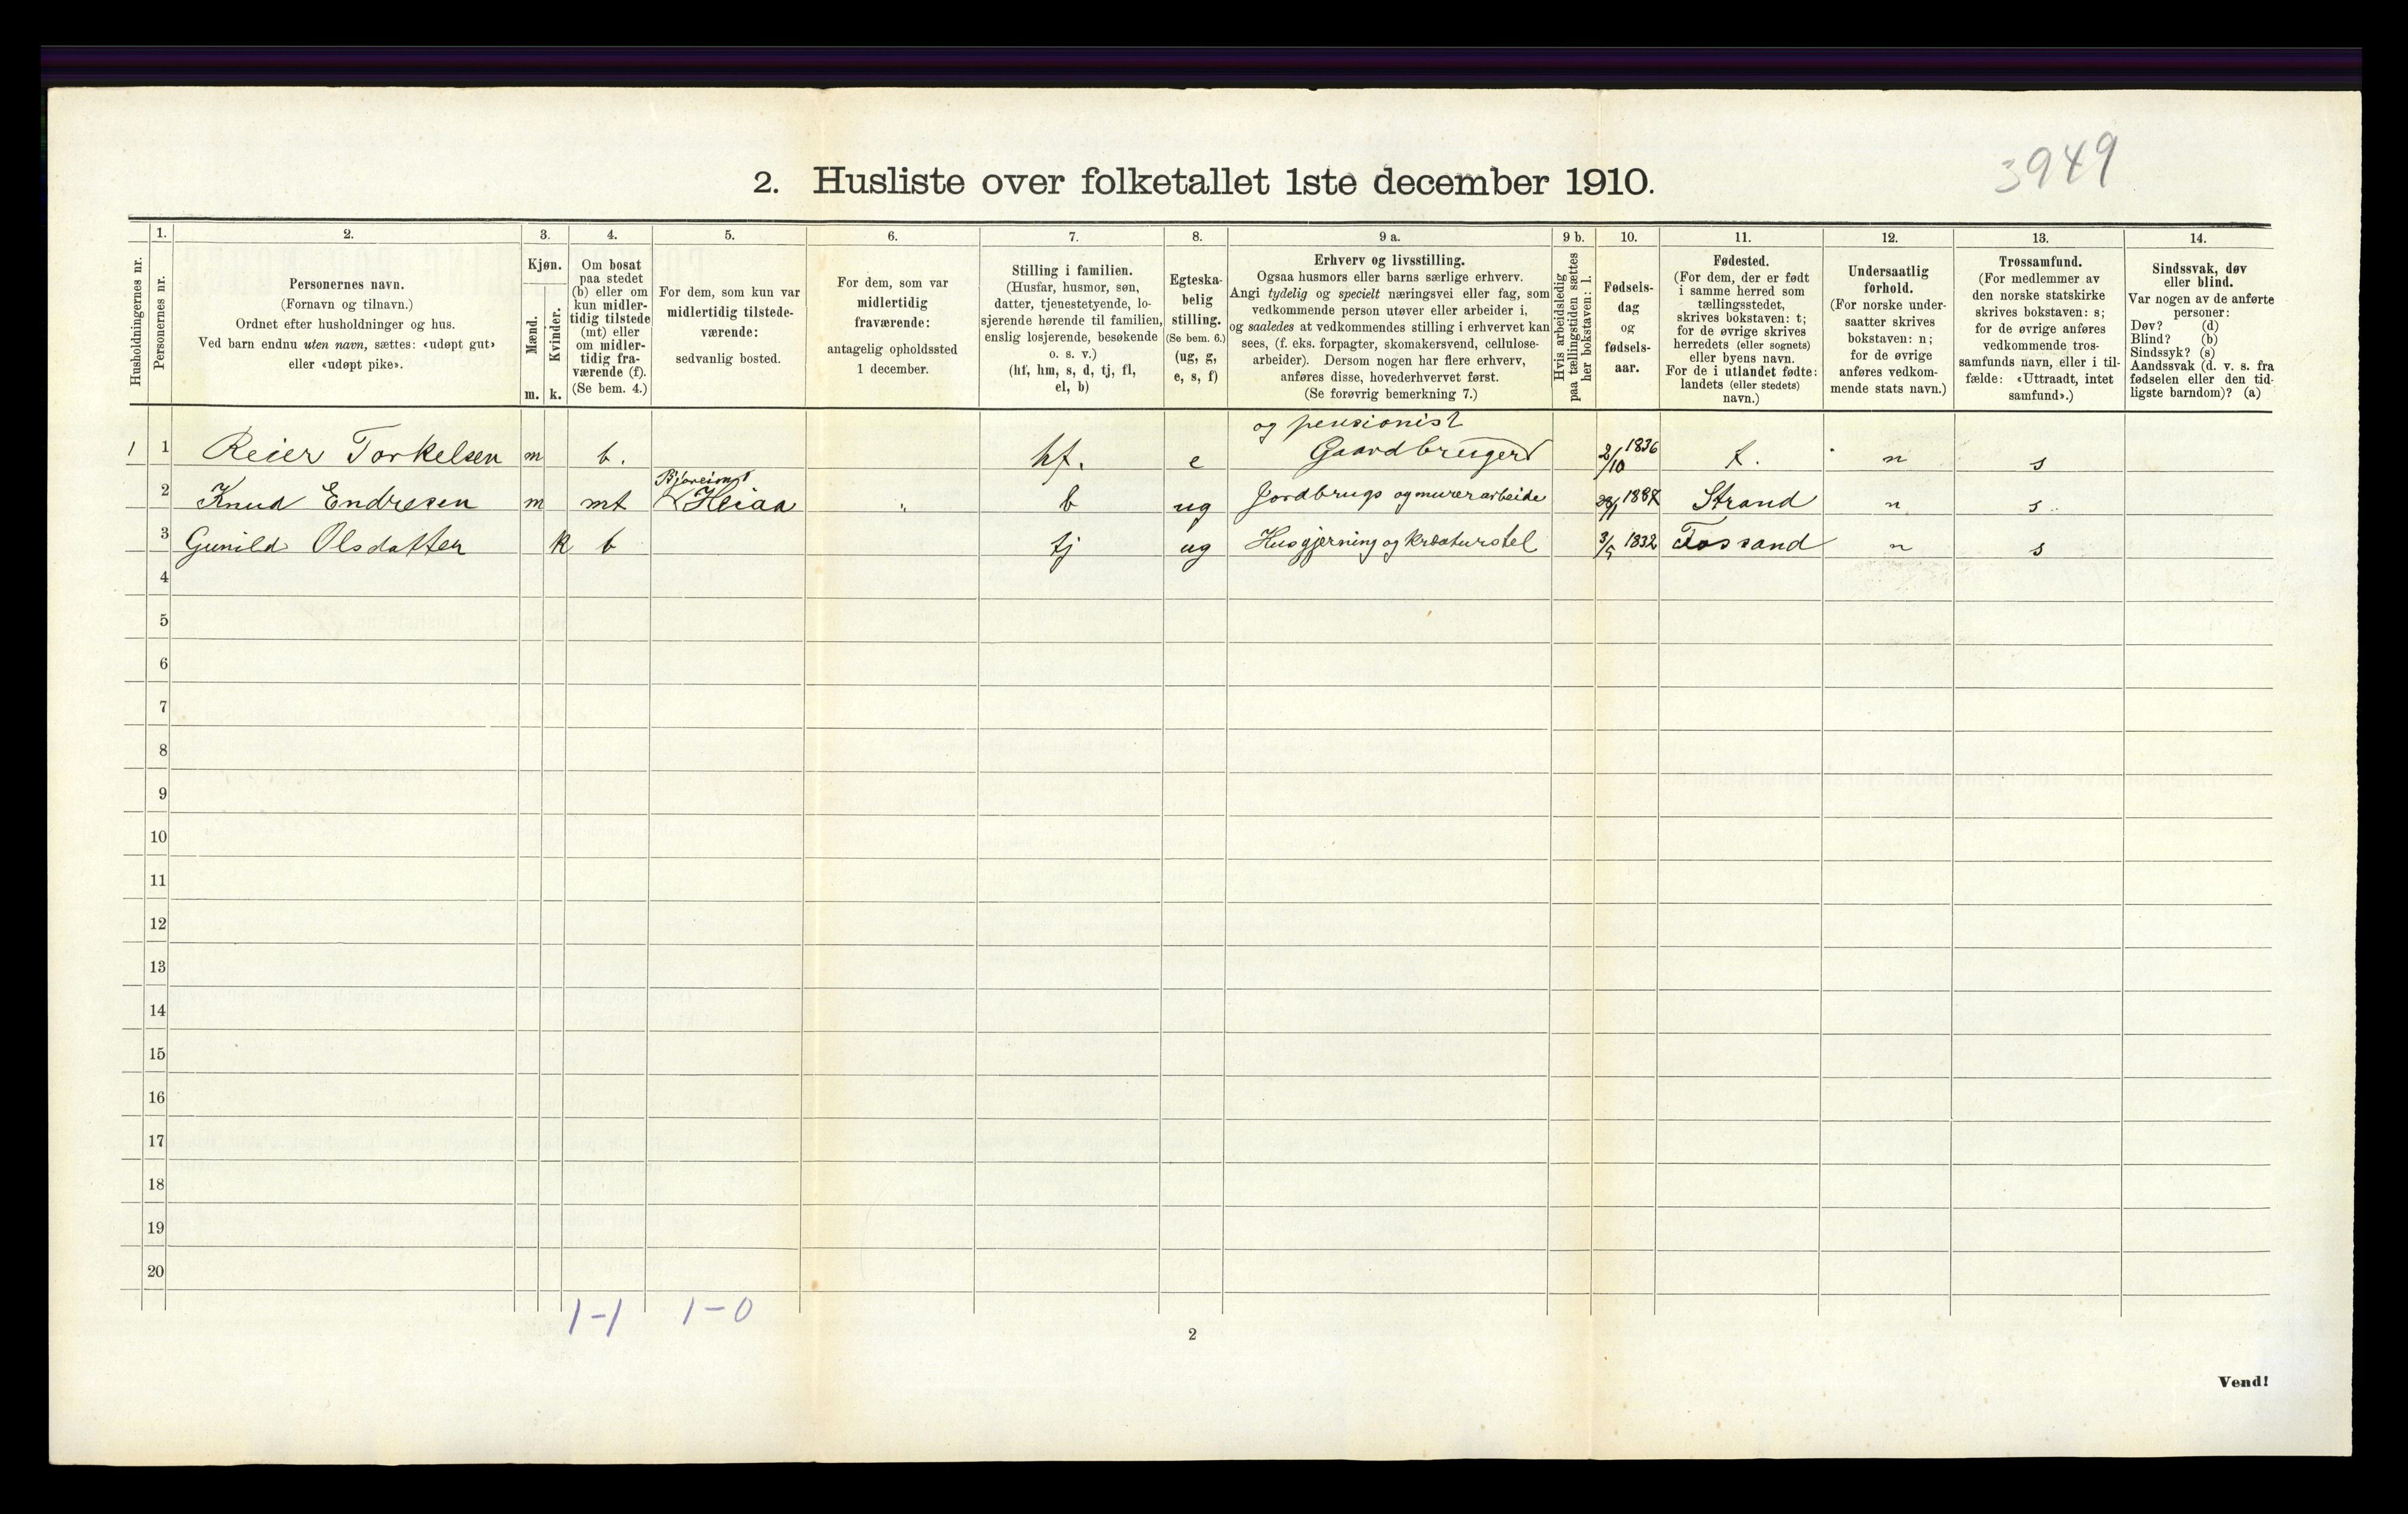 3949
2. Husliste over folketallet 1ste december 1910.
Husholdningernes nr.
1.
Personernes nr.
2.
Personernes navn.
(Fornavn og tilnavn.)
Ordnet efter husholdninger og hus.
Ved barn endnu uten navn, sættes: «udøpt gut»
eller «udøpt pike».
3.
Kjøn.
Mænd.
Kvinder.
m. k.
4.
Om bosat
paa stedet
(b) eller om
kun midler-
tidig tilstede
(mt) eller
om midler-
tidig fra-
værende (f).
(Se bem. 4.)
5.
For dem, som kun var
midlertidig tilstede-
værende:
sedvanlig bosted.
6.
For dem, som var
midlertidig
fraværende:
antagelig opholdssted
1 december.
7.
Stilling i familien.
(Husfar, husmor, søn,
datter, tjenestetyende, lo-
sjerende hørende til familien,
enslig losjerende, besøkende
o. s. v.)
(hf, hm, s, d, tj, fl,
el, b)
8.
Egteska-
belig
stilling.
(Se bem. 6.)
(ug, g,
e, s, f)
9 a.
Erhverv og livsstilling.
Ogsaa husmors eller barns særlige erhverv.
Angi tydelig og specielt næringsvei eller fag, som
vedkommende person utøver eller arbeider i,
og saaledes at vedkommendes stilling i erhvervet kan
sees, (f. eks. forpagter, skomakersvend, cellulose-
arbeider). Dersom nogen har flere erhverv,
anføres disse, hovederhvervet først.
(Se forøvrig bemerkning 7.)
9 b.
Hvis arbeidsledig
paa tællingstiden sættes
her bokstaven: l.
10.
Fødsels-
dag
og
fødsels-
aar.
11.
Fødested.
(For dem, der er født
i samme herred som
tællingsstedet,
skrives bokstaven: t;
for de øvrige skrives
herredets (eller sognets)
eller byens navn.
For de i utlandet fødte:
landets (eller stedets)
navn.)
12.
Undersaatlig
forhold.
(For norske under-
saatter skrives
bokstaven: n;
for de øvrige
anføres vedkom-
mende stats navn.)
13.
Trossamfund.
(For medlemmer av
den norske statskirke
skrives bokstaven: s;
for de øvrige anføres
vedkommende tros-
samfunds navn, eller i til-
fælde: «Uttraadt, intet
samfund».)
14.
Sindssvak, døv
eller blind.
Var nogen av de anførte
personer:
Døv? (d)
Blind? (b)
Sindssyk? (s)
Aandssvak (d. v. s. fra
fødselen eller den tid-
ligste barndom)? (a)
og pensionist
1 1 Reier Torkelsen m b. hf. e Gaardbruger 2/10 1836 t. n s
2 Knud Endresen m mt Heiaa b ug Jordbrugs og murerarbeide Strand n s
3 Gunild Olsdatter k b tj ug Husgjerning og kreaturstel 3/5 1832 Fossand n s
4
5
6
7
8
9
10
11
12
13
14
15
16
17
18
19
20
1-1 1-0
2
Vend!